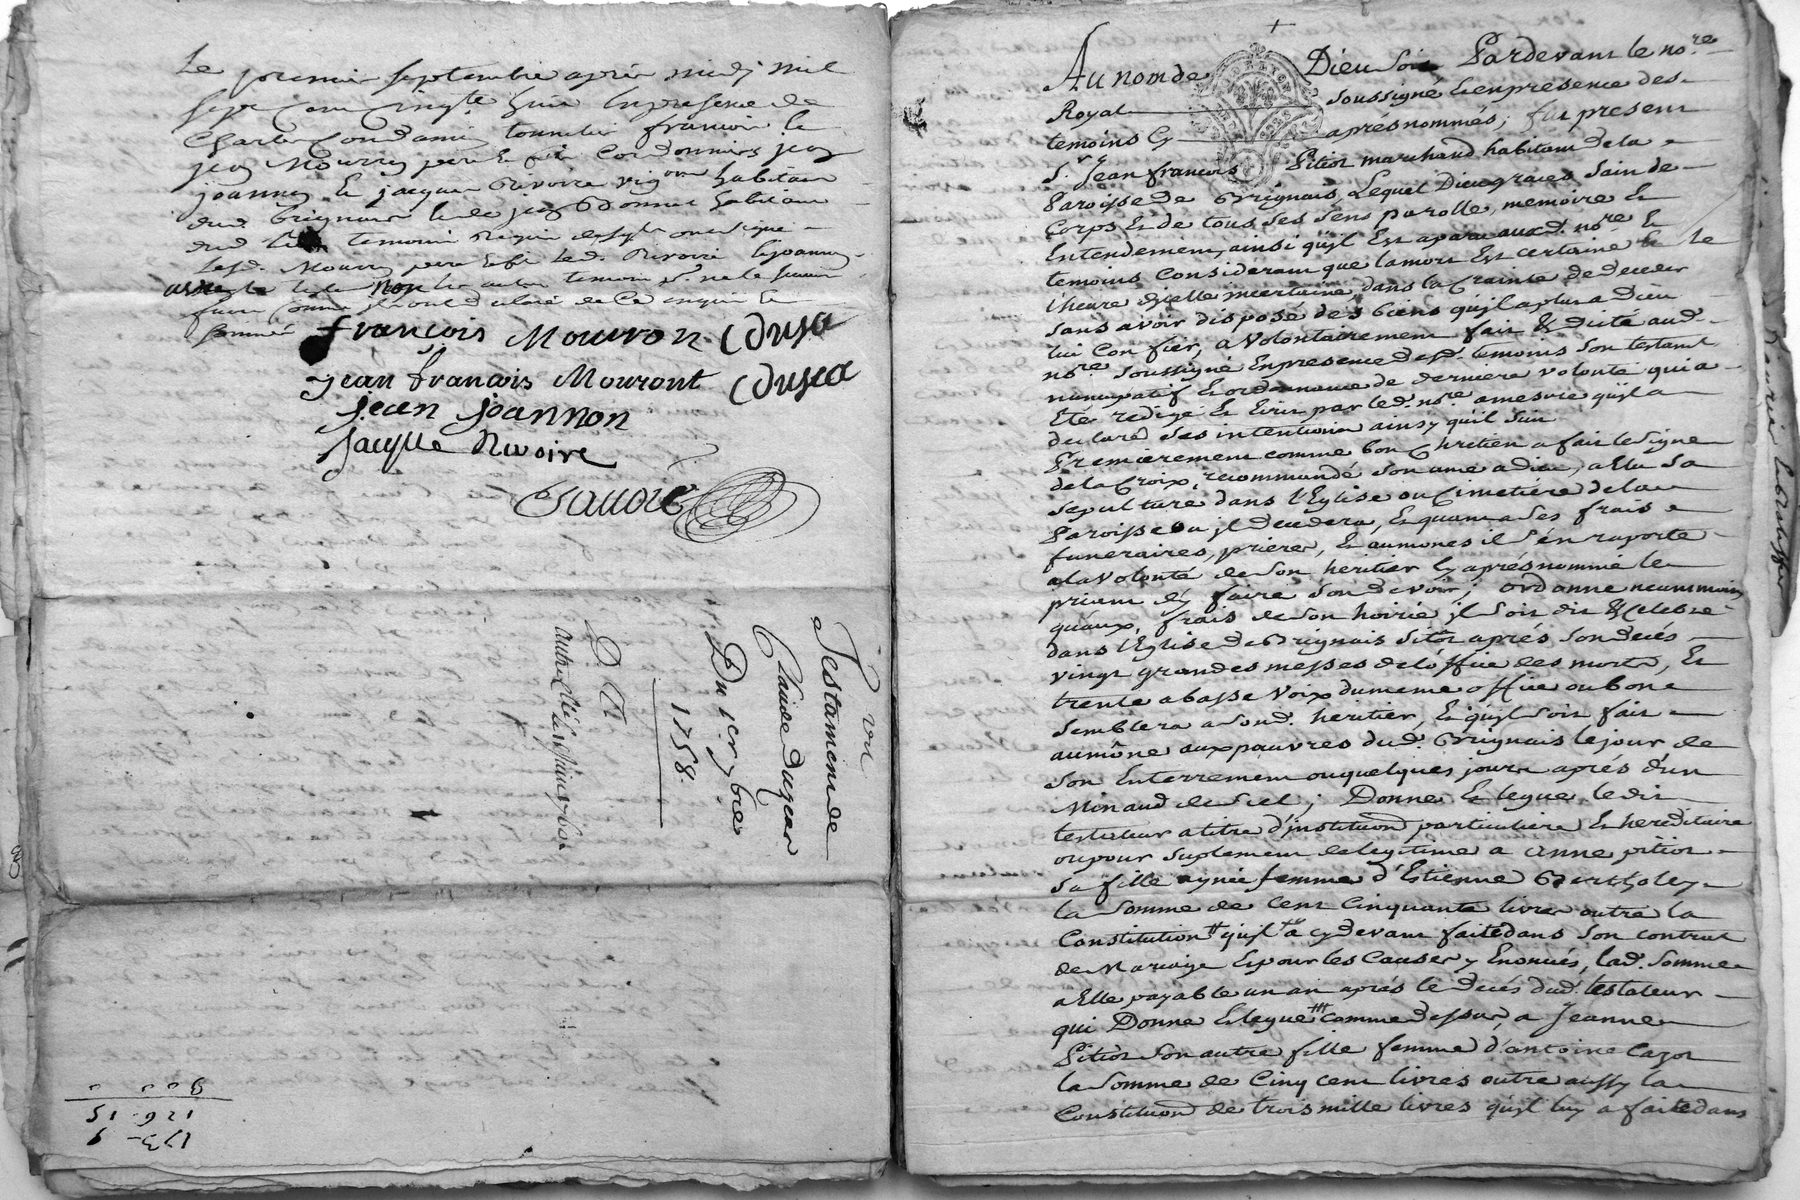 Le premier septembre après midy mil
sept cent cinqte huit en presence de
Charle Condamin tonnelier francois le
jean Mourron pere & fils Cordonniers jean
joannon & jacques Rivoire vigrons habitans
dud. Brignais & de jean Bonnet habitant
dud. temoins Requis & ont signé
Lesd. Mourron pere & fils led. Rivoire & joannon
non les autres temoins pr ne le savoir
faire comme ils ont declaré de ce enquis &
sommé
françois Mouron
jean françois Mouront
jean joannon
jacque Rivoire
vu
Testament de
Claude
Du 1er 7bre
1758.
900
126. 15
173 - 9
Au nom de Dieu soit Pardevant le nore
Royal soussigné & en presence des
temoins Cy après nommés, fut present
Sr. Jean francois Pitiot marchand habitant de la
Paroisse de Brignais, Lequel Dieu graces sain de
Corps & de tous ses sens parolle, memoire &
Entendement, ainsi qu'jl Est aparu aud. nore &
temoins Considerant que la mort Est certaine & le
l'heure d'jcelle incertaine, dans la Crainte de deceder
sans avoir disposé des biens qu'jl a plut a Dieu
lui Confier, a volontairement fait & dicté aud.
nore soussigné En presence desd. temoins son testamt
nuncupatif & ordonnance de derniere volonté qui a
Eté redigé & Ecrit par led. nore a mesure qu'jl a
declaré ses intentions ainsy qu'il suit
Premierement comme bon Chretien a fait le signe
de la Croix, recommandé son ame a dieu, a Elu sa
sepulture dans l'Eglise ou Cimetiére de la
Paroisse ou jl decedera, & quant a ses frais
funeraires, prieres, & aumones il s'en raporte
a la volonté de son heritier Cy après nommé le
priant d'y faire son devoir; ordonne neanmoins
qu'aux frais de son hoirie jl soit dit & Celebré
dans l'Eglise de Brignais sitôt aprés son decés
vingt grandes messes de l'office des morts, Et
trente a basse voix du meme office ou bon
semblera a sond. heritier, & qu'jl soit fait
aumône aux pauvres dud. Brignais le jour de
son Enterrement ou quelques jours aprés d'un
Minaud de sel; Donne & legue le dit
testateur a titre d'institution particuliere & hereditaire
ou pour suplement de legitime a anne pitiot
sa fille aynée femme d'Etienne Bartholey
la somme de cent cinquante livres outre la
Constitution qu'jl a cy devant faite dans son contrat
de Mariage & pour les Causes y Enoncés, lad. somme
a Elle payable un an aprés le decés dud. testateur
qui Donne & legue comme dessus, a Jeanne
Pitiot son autre fille femme d'antoine Cazot
la somme de Cinq cent livres outre aussy la
Constitution de trois mille livres qu'jl luy a faite dans